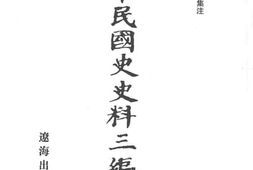 集注
民國史史料三編
遼海出